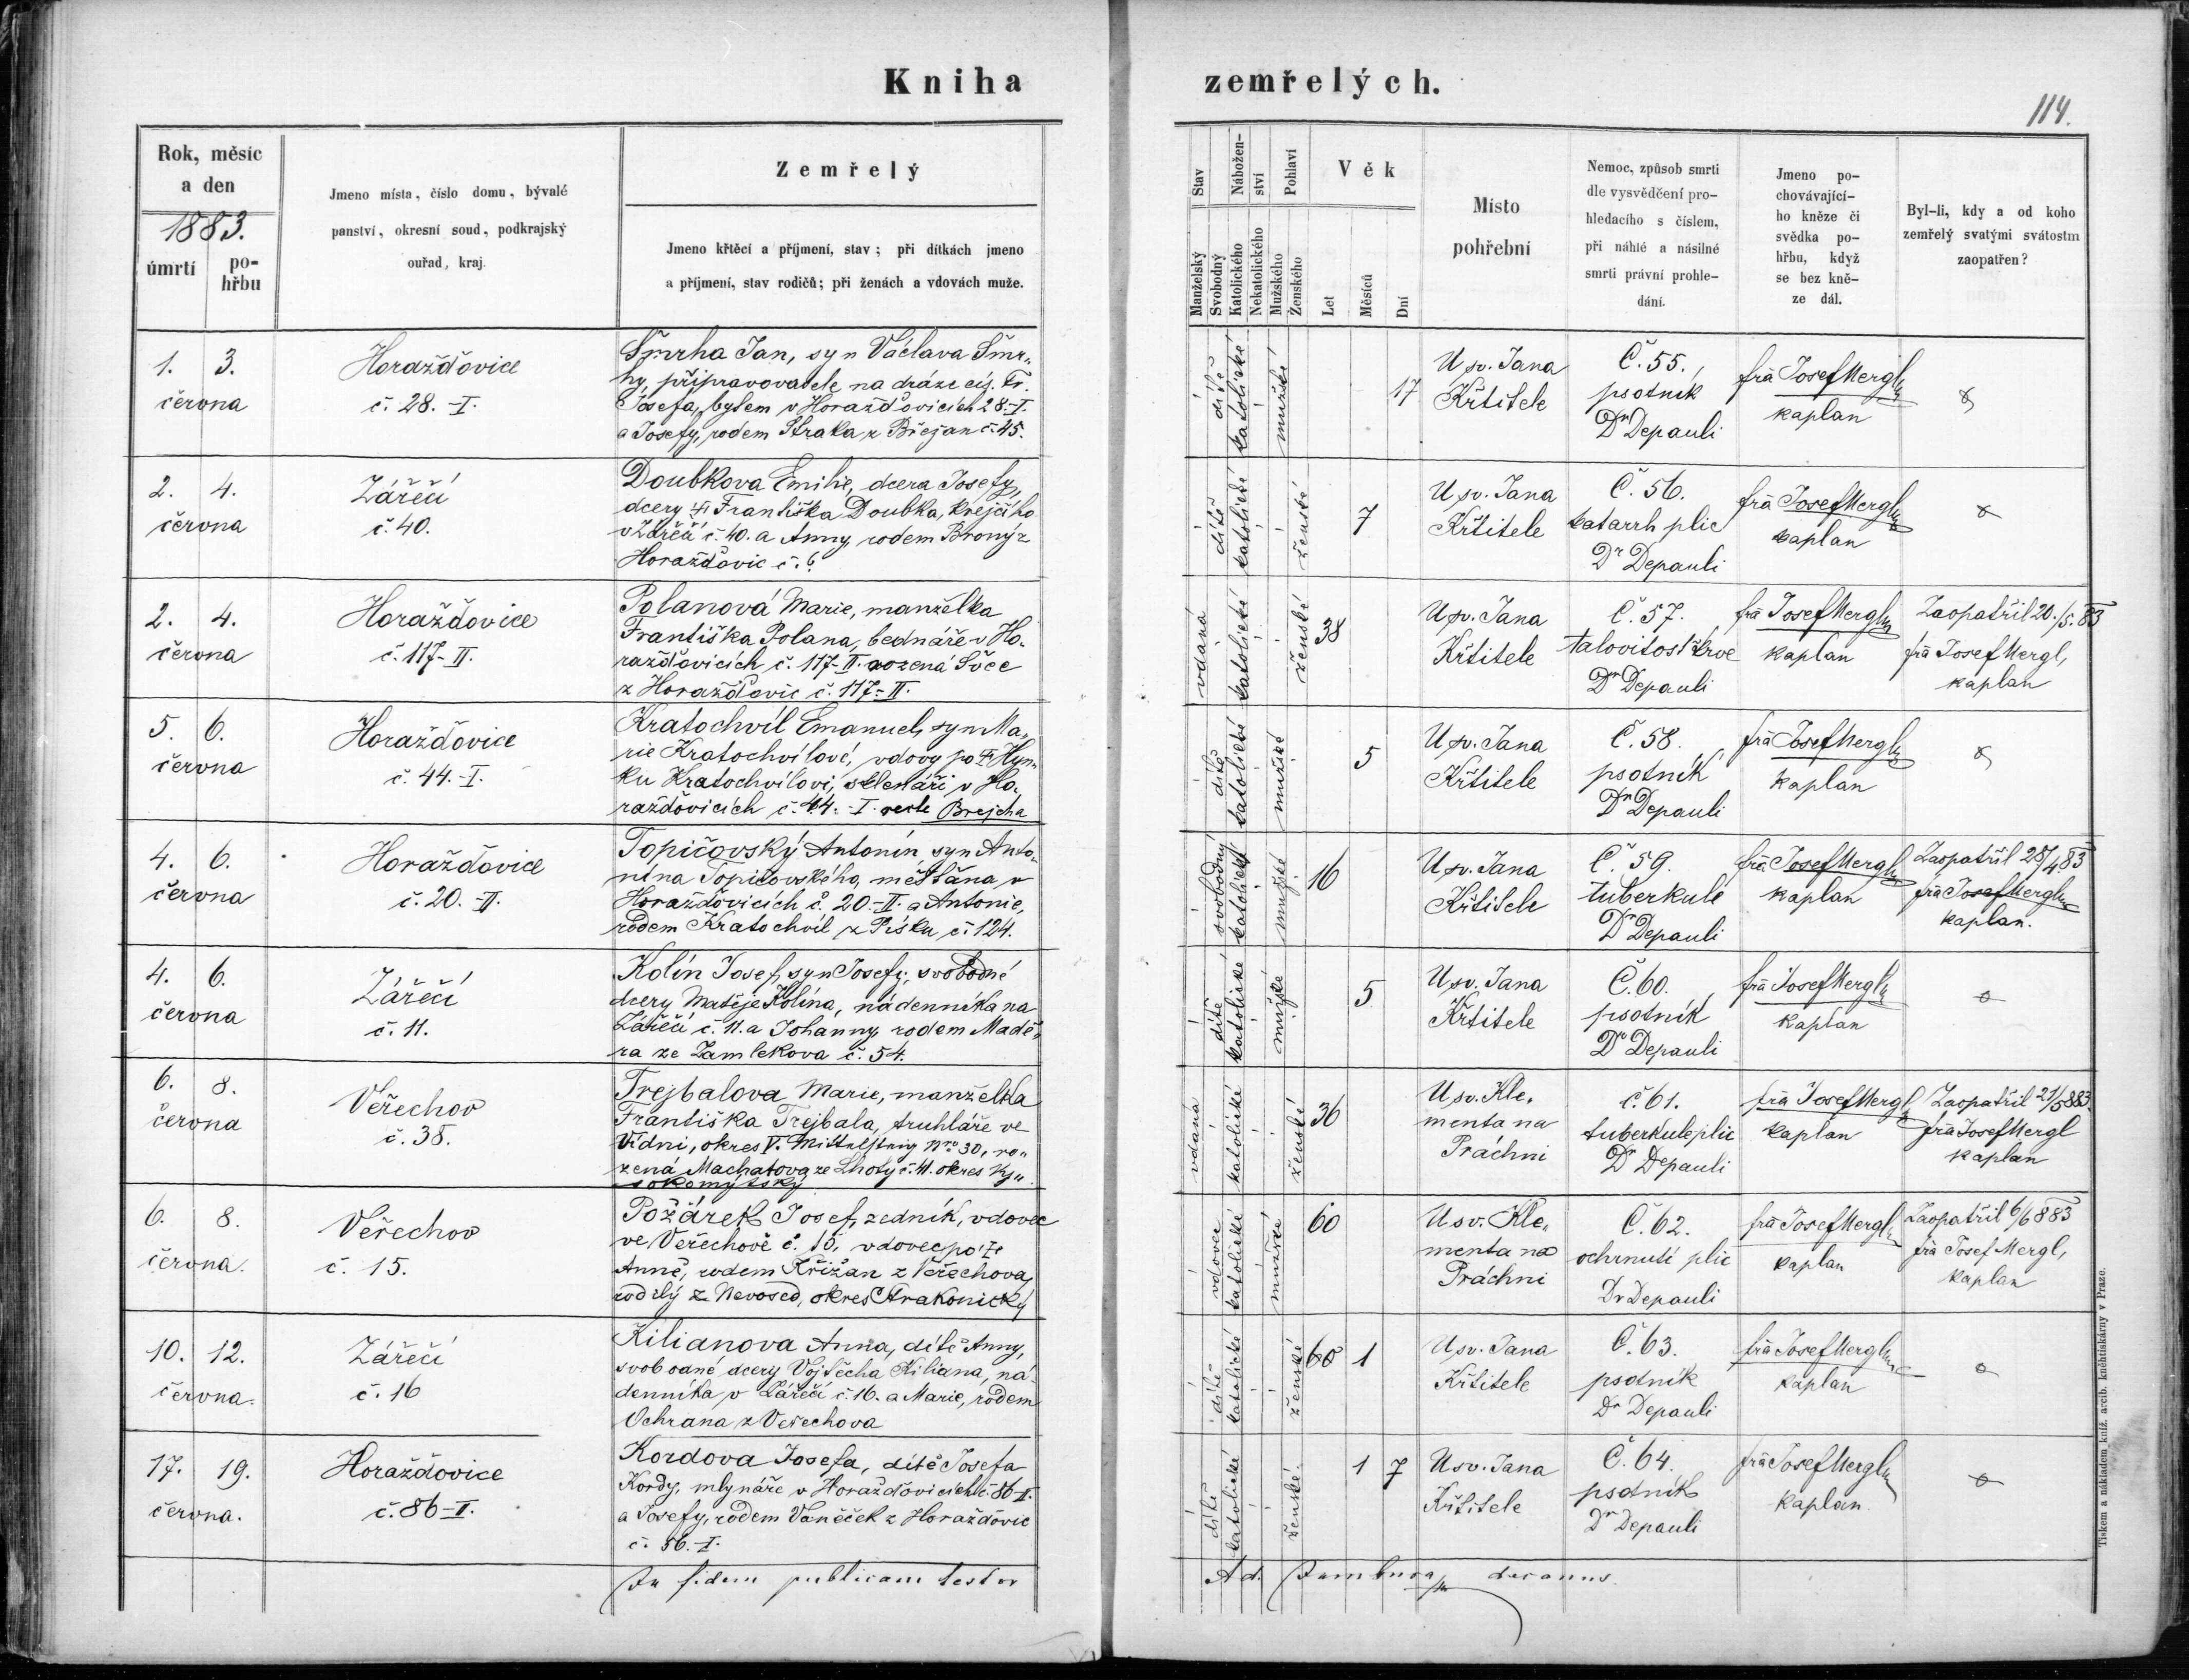 Kniha zemřelých.
114.
Rok, měsíc
a den
1883.
úmrtí
po-
hřbu
Jmeno místa, číslo domu, bývalé
panství, okresní soud, podkrajský
ouřad, kraj.
Zemřelý
Jmeno křtěcí a příjmení, stav; při dítkách jmeno
a příjmení, stav rodičů; při ženách a vdovách muže.
Stav
Manželský
Svobodný
Nábožen-
ství
Katolického
Nekatolického
Pohlaví
Mužského
Ženského
Věk
Let
Měsíců
Dní
Místo
pohřební
Nemoc, způsob smrti
dle vysvědčení pro-
hledacího s číslem,
při náhlé a násilné
smrti právní prohle-
dání.
Jmeno po-
chovávající-
ho kněze či
svědka po-
hřbu, když
se bez kně-
ze dál.
Byl-li, kdy a od koho
zemřelý svatými svátostm
zaopatřen?
1. 3.
června
Horažďovice
č. 28.-I.
Šmrha Jan, syn Václava Šmr-
hy, připravovatele na dráze cís. Fr.
Josefa, bytem v Horažďovicích 28.-I.
a Josefy, rodem Straka z Břežan č. 45.
dítě
katolické
mužské
17
U sv. Jana
Křtitele
Č. 55.
psotník
Dr Depauli
frà Josef Mergl
kaplan
2. 4.
června
Zářečí
č. 40.
Doubkova Emilie, dcera Josefy,
dcery † Františka Doubka, krejčího
v Zářečí č. 40. a Anny, rodem Brony z
Horažďovic č. ?
dítě
katolické
ženské
7
U sv. Jana
Křtitele
Č. 56.
katarrh plic
Dr Depauli
frà Josef Mergl
kaplan
2. 4.
června
Horažďovice
č. 117-II.
Polanová Marie, manželka
Františka Polana, bednáře v Ho-
ražďovicích č. 117-II. rozená Švec
z Horažďovic č. 117-II.
vdaná
katolické
ženské
38
U sv. Jana
Křtitele
Č. 57.
talovitost krve
Dr Depauli
frà Josef Mergl
kaplan
Zaopatřil 20./5. 83
frà Josef Mergl,
kaplan
5. 6.
června
Horažďovice
č. 44.-I.
Kratochvíl Emanuel, syn Ma-
rie Kratochvílové, vdovy po † Hyn-
ku Kratochvílovi, sklenáři v Ho-
ražďovicích č. 44.-I. recte Brejcha
dítě
katolické
mužské
5
U sv. Jana
Křtitele
Č. 58.
psotník
Dr Depauli
frà Josef Mergl
kaplan
4. 6.
června
Horažďovice
č. 20.-II.
Topičovský Antonín, syn Anto-
nína Topičovského, měšťana v
Horažďovicích č. 20.-II. a Antonie,
rodem Kratochvíl z Písku č. 124.
svobodný
katolické
mužské
16
U sv. Jana
Křtitele
Č. 59.
tuberkule
Dr Depauli
frà Josef Mergl
kaplan
Zaopatřil 28/4 83
frà Josef Mergl
kaplan.
4. 6.
června
Zářečí
č. 11.
Kolín Josef, syn Josefy, svobodné
dcery Matěje Kolína, nádenníka na
Zářečí č. 11. a Johanny, rodem Madě-
ra ze Zamlekova č. 54.
dítě
katolické
mužské
5
U sv. Jana
Křtitele
Č. 60.
psotník
Dr Depauli
frà Josef Mergl
kaplan
6. 8.
června
Veřechov
č. 38.
Trejbalova Marie, manželka
Františka Trejbala, truhláře ve
Vídni, okres V. Mittelsteig Nro 30, ro-
zená Machatova ze Lhoty č. 41. okres Vy-
sokomýtský
vdaná
katolické
ženské
36
U sv. Kle-
menta na
Práchni
č. 61.
tuberkule plic
Dr Depauli
frà Josef Mergl
kaplan
Zaopatřil 21/5 883.
frà Josef Mergl
kaplan
6. 8.
června.
Veřechov
č. 15.
Požárek Josef, zedník, vdovec
ve Veřechově č. 15, vdovec po †
Anně, rodem Křižan z Veřechova,
rodilý z Nevosed, okres Strakonický
vdovec
katolické
mužské
60
U sv. Kle-
menta na
Práchni
Č. 62.
ochrnutí plic
Dr Depauli
frà Josef Mergl
kaplan
Zaopatřil 6/6 883
frà Josef Mergl,
kaplan
10. 12.
června.
Zářečí
č. 16
Kilianova Anna, dítě Anny,
svobodné dcery Vojtěcha Kiliana, ná-
denníka v Zářečí č. 16. a Marie, rodem
Ochrana z Veřechova
dítě
katolické
ženské
60 1
U sv. Jana
Křtitele
Č. 63.
psotník
Dr Depauli
frà Josef Mergl
kaplan
17. 19.
června.
Horažďovice
č. 86-II.
Kordova Josefa, dítě Josefa
Kordy, mlynáře v Horažďovicích č. 86-II.
a Josefy, rodem Vaněček z Horažďovic
č. 56.-I.
dítě
katolické
ženské.
1 7
U sv. Jana
Křtitele
Č. 64.
psotník
Dr Depauli
frà Josef Mergl
kaplan.
In fidem publicam testor
Ad. Jambura decanus.
Tiskem a nákladem kníž. arcib. knihtiskárny v Praze.